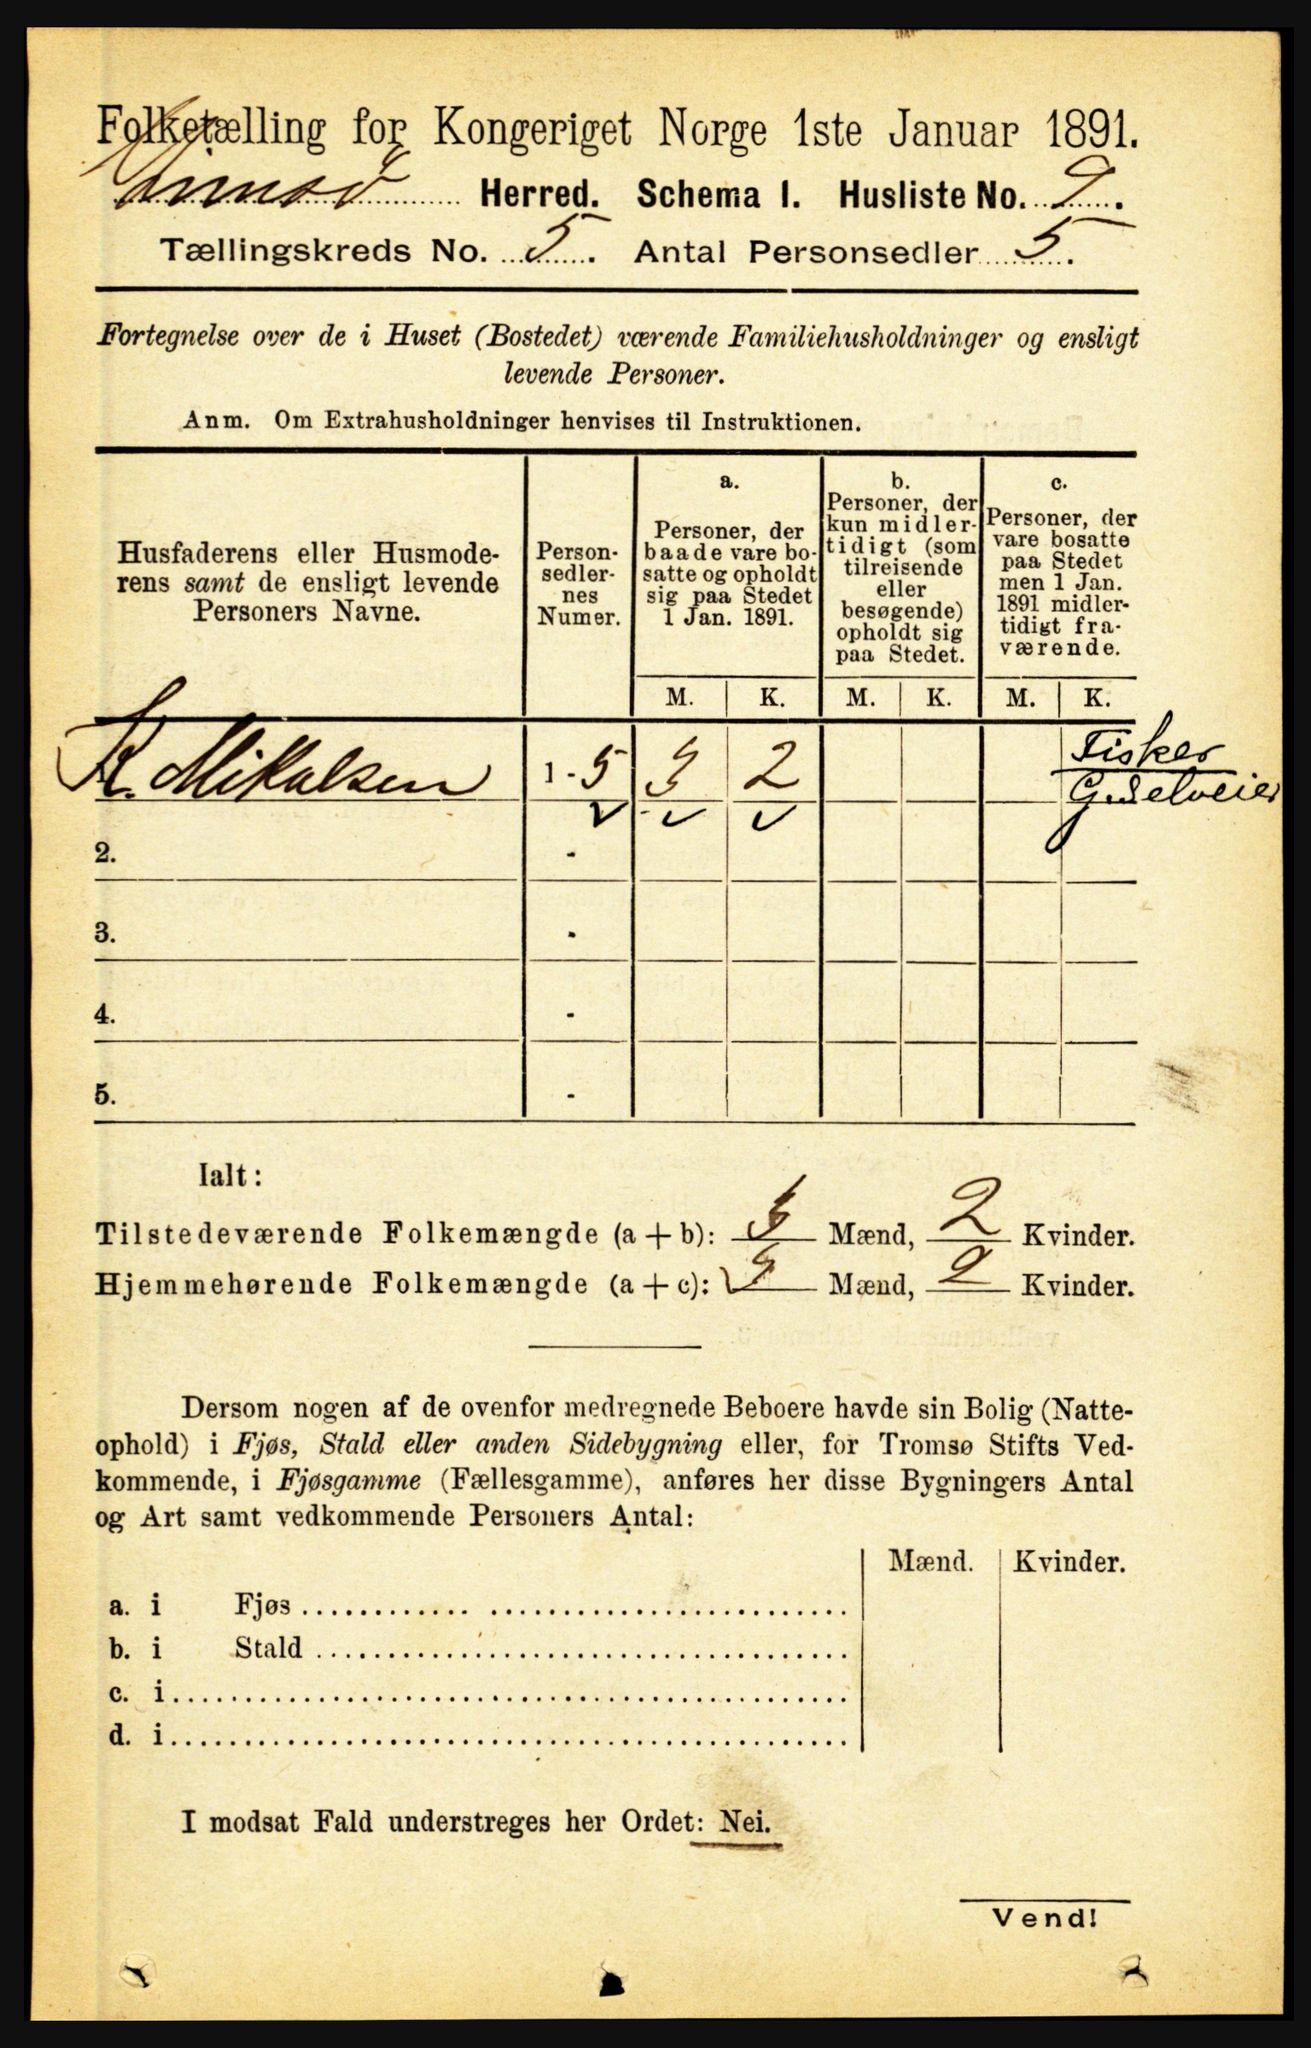 Folketælling for Kongeriget Norge 1ste Januar 1891.
Herred. Schema I. Husliste No. 9.
Tællingskreds No. 5. Antal Personsedler 5.
Fortegnelse over de i Huset (Bostedet) værende Familiehusholdninger og ensligt
levende Personer.
Anm. Om Extrahusholdninger henvises til Instruktionen.
Husfaderens eller Husmode-
rens samt de ensligt levende
Personers Navne.
Person-
sedler-
nes
Numer.
a.
Personer, der
baade vare bo-
satte og opholdt
sig paa Stedet
1 Jan. 1891.
b.
Personer, der
kun midler-
tidigt (som
tilreisende
eller
besøgende)
opholdt sig
paa Stedet.
c.
Personer, der
vare bosatte
paa Stedet
men 1 Jan.
1891 midler-
tidigt fra-
værende.
M. K. M. K. M. K.
K. Mikalsen 1 - 5 3 2 Fisker
2. -
3. -
4. -
5. -
Ialt:
Tilstedeværende Folkemængde (a + b): 3 Mænd, 2 Kvinder.
Hjemmehørende Folkemængde (a + c): 3 Mænd, 2 Kvinder.
Dersom nogen af de ovenfor medregnede Beboere havde sin Bolig (Natte-
ophold) i Fjøs, Stald eller anden Sidebygning eller, for Tromsø Stifts Ved-
kommende, i Fjøsgamme (Fællesgamme), anføres her disse Bygningers Antal
og Art samt vedkommende Personers Antal:
Mænd. Kvinder.
a. i Fjøs
b. i Stald
c. i
d. i
I modsat Fald understreges her Ordet: Nei.
Vend!